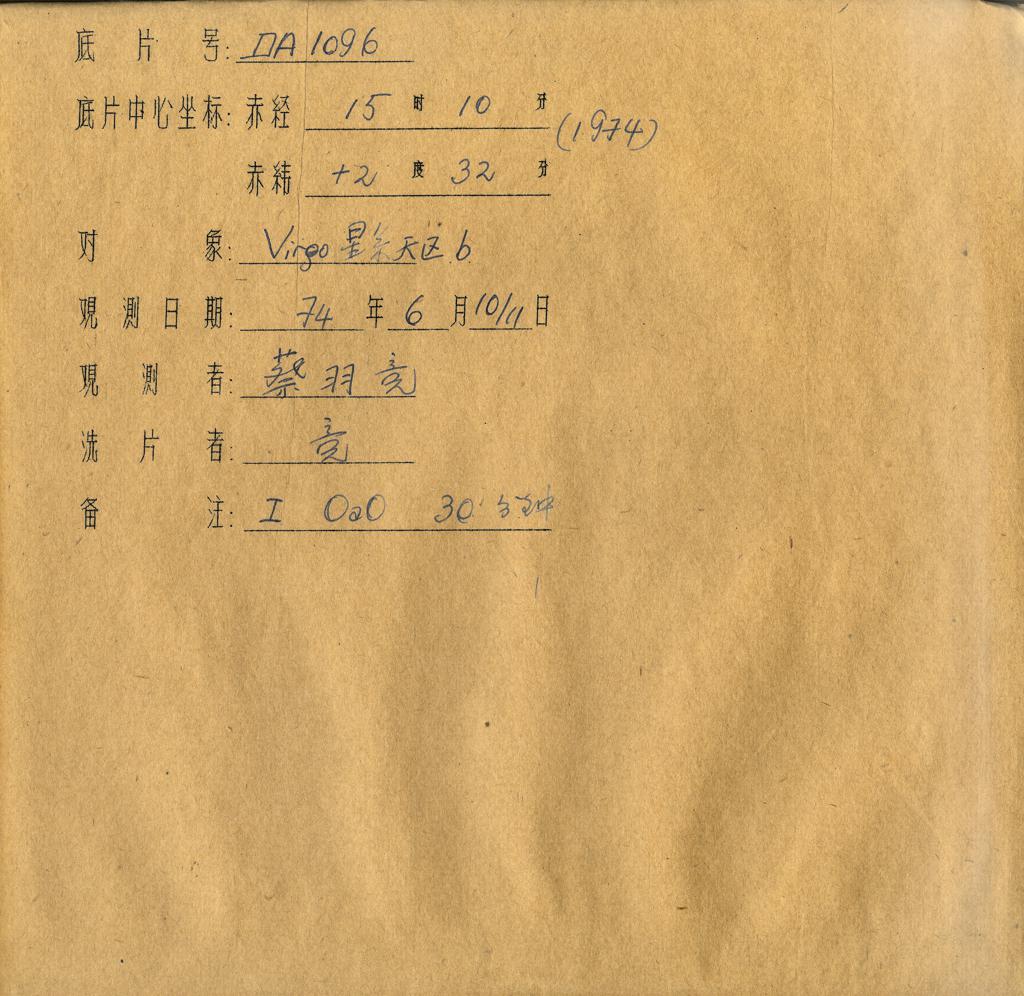 底片号: DA 1096
底片中心坐标: 赤经 15 时 10 分 (1974)
赤纬 +2 度 32 分
对象: Virgo 星系天区 b
观测日期: 74 年 6 月 10/11 日
观测者: 蔡 羽 竟
洗片者: 竟
备注: I OaO 30 分钟